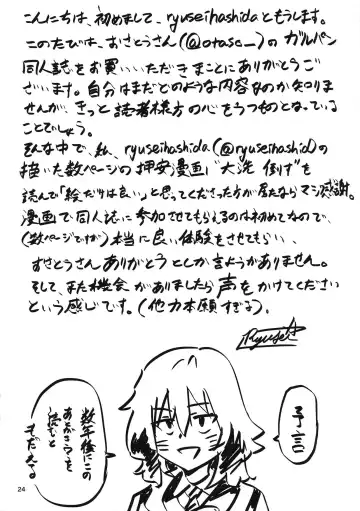 こんにちは、初めまして、ryuseihashidaともうします。
このたびは、おさとうさん(@otaso_)のガルパン
同人誌をお買い、いただきまことにありがとうご
ざいます。自分はまだどのような内容なのか知りま
せんが、きっと読者様方の心をうつものとなっている
ことでしょう。
そんな中で、私、ryuseihashida(@ryuseihashid)の
描いた数ページの押安漫画"大洗 倒れず"を
読んで「絵だけは良い」と思ってくださった方が居たならマジ感謝。
漫画で同人誌に参加させてもらえるのは初めてなので、
(数ページですが)本当に良い体験をさせてもらい、
おさとうさんありがとうとしか言ようがありません。
そして、また機会がありましたら声をかけてください
という感じです。(他力本願すぎる)。
Ryusei
予言
数年後にこの
あとがきを
読むと
もだえる
24